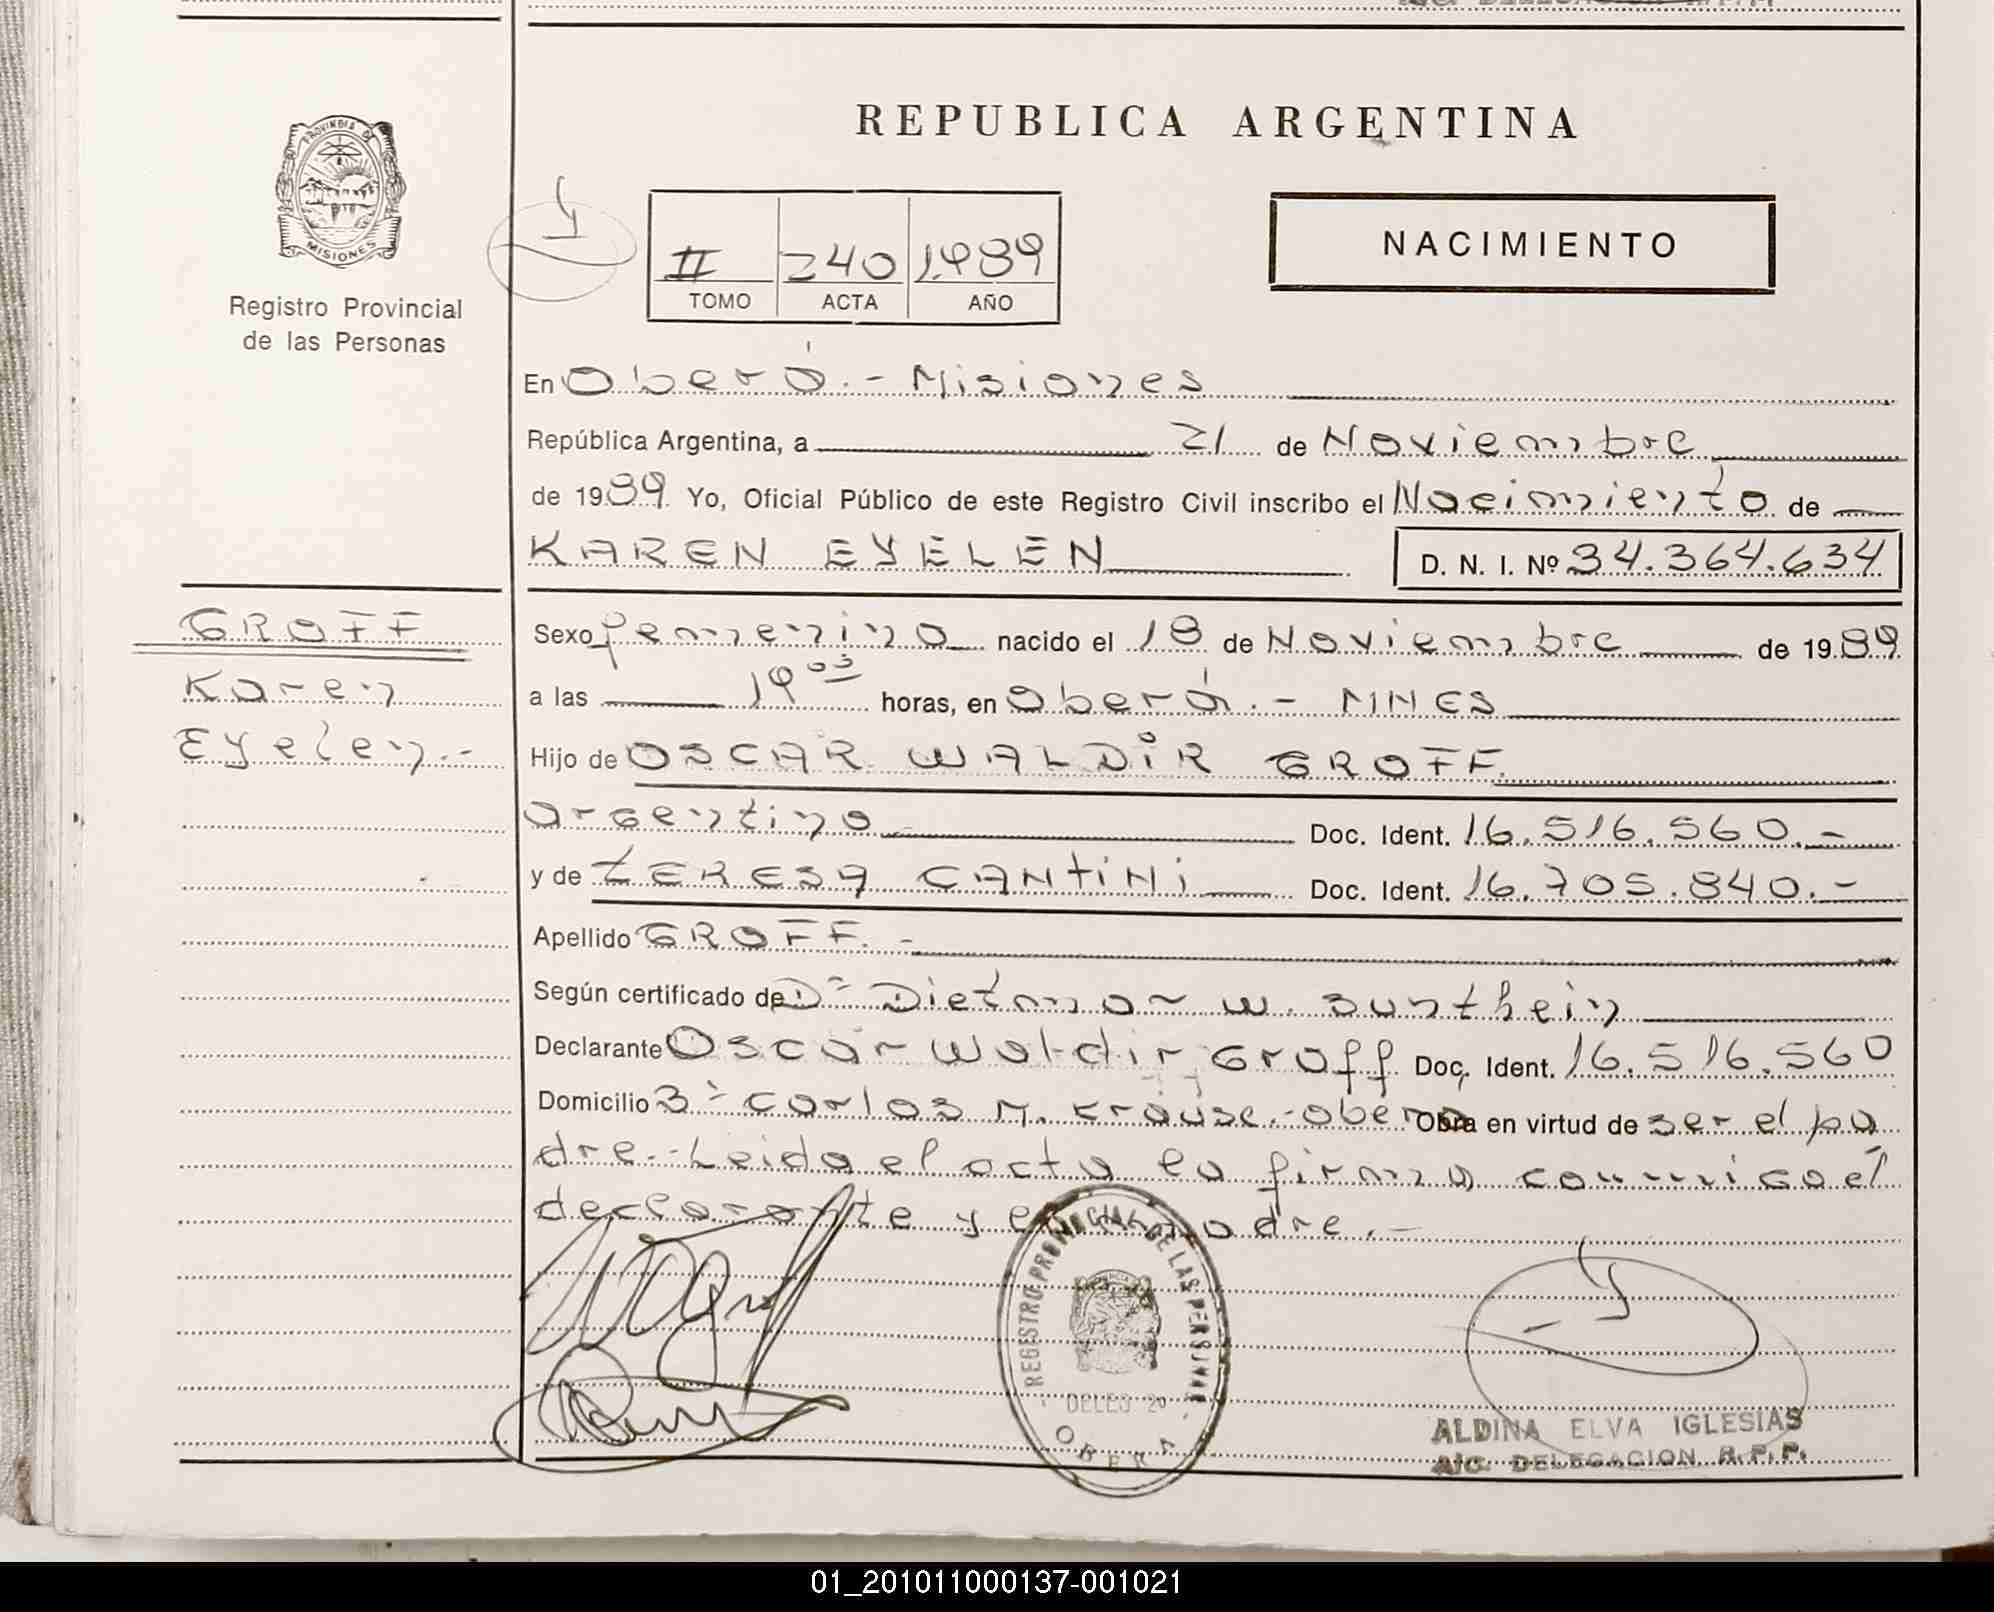 REPUBLICA ARGENTINA
PROVINCIA DE MISIONES
Registro Provincial
de las Personas
II 240 1989
TOMO ACTA AÑO
NACIMIENTO
En Oberá.- Misiones
República Argentina, a 21 de Noviembre
de 1989. Yo, Oficial Público de este Registro Civil inscribo el Nacimiento de
KAREN EYELEN D. N. I. Nº 34.364.634
GROFF
Karen
Eyelen.-
Sexo femenino nacido el 18 de Noviembre de 1989
a las 19 03 horas, en Oberá.- MNES
Hijo de OSCAR WALDIR GROFF
argentino.- Doc. Ident. 16.516.560.-
y de TERESA CANTINI Doc. Ident. 16.705.840.-
Apellido GROFF.-
Según certificado de Dr Dietmar W.
Declarante Oscar Waldir Groff Doc. Ident. 16.516.560
Domicilio Bº Carlos M. Krause.-Oberá Obra en virtud de ser el pa
dre.-Leida el acta la firma conmigo el
declarante y la madre.-
REGISTRO PROVINCIAL DE LAS PERSONAS
OBERA
ALDINA ELVA IGLESIAS
A/C. DELEGACION R.P.P.
01_201011000137-001021